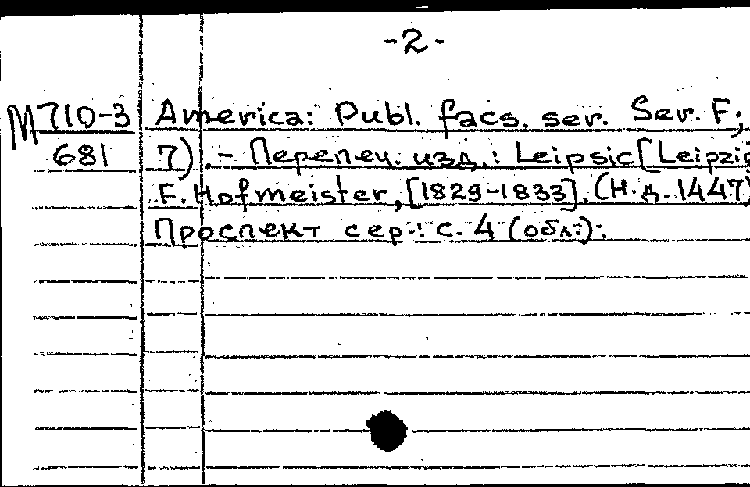 -2-
М710-3 America: Publ. facs. ser. Ser. F;
681 7). - Перепеч. изд.: Leipsic [Leipzig
F. Hofmeister, [1829-1833]. (Н.д. 1447)
Проспект сер.: с. 4 (обл.).